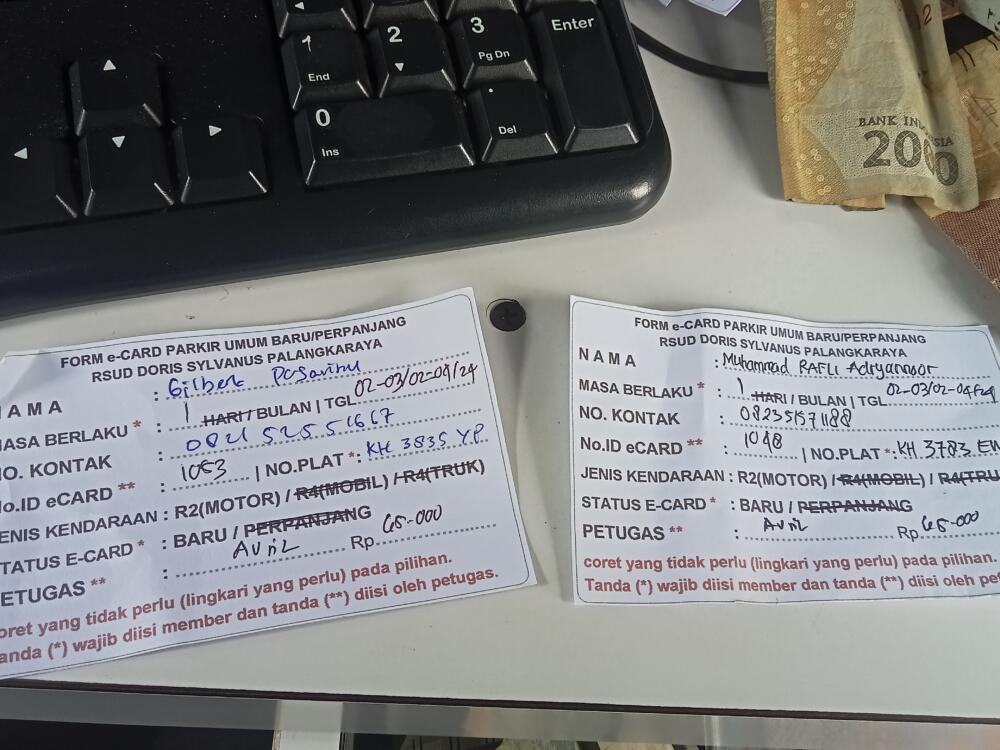 1
End
2
3
Pg Dn
Enter
0
Ins
.
Del
BANK INDONESIA
2000
FORM e-CARD PARKIR UMUM BARU/PERPANJANG
RSUD DORIS SYLVANUS PALANGKARAYA
AMA : Gilbert
MASA BERLAKU * : 1 HARI / BULAN | TGL 02-03/02-04/24
NO. KONTAK : 0821 5255 1667
No.ID eCARD ** 1053 | NO.PLAT *: KH 3835 YP
JENIS KENDARAAN : R2(MOTOR) / R4(MOBIL) / R4(TRUK)
STATUS E-CARD * : BARU / PERPANJANG
ETUGAS ** : Avril Rp. 65-000
coret yang tidak perlu (lingkari yang perlu) pada pilihan.
anda (*) wajib diisi member dan tanda (**) diisi oleh petugas.
FORM e-CARD PARKIR UMUM BARU/PERPANJANG
RSUD DORIS SYLVANUS PALANGKARAYA
NAMA : Muhammad RAFLI Adryannoor
MASA BERLAKU * : 1 HARI / BULAN | TGL 02-03/02-04/24
NO. KONTAK : 082351571188
No.ID eCARD ** : 1048 | NO.PLAT *: KH 3783 E
JENIS KENDARAAN : R2(MOTOR) / R4(MOBIL) / R4(TRU
STATUS E-CARD * : BARU / PERPANJANG
PETUGAS ** : Avril Rp. 65-000
coret yang tidak perlu (lingkari yang perlu) pada pilihan.
Tanda (*) wajib diisi member dan tanda (**) diisi oleh pe